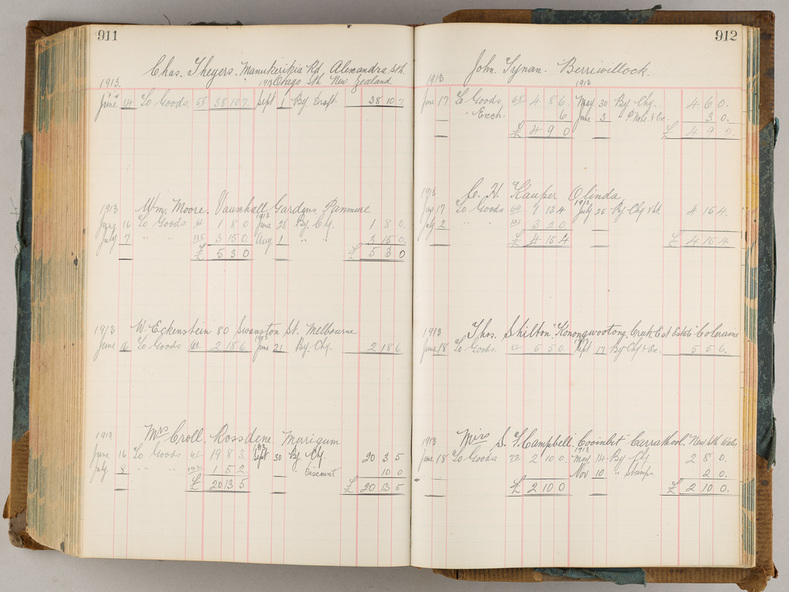 911
Chas. Theyers. Manukerikia Rd. Alexandra Sth.
1913. Otago Sth. New Zealand
June 14 To Goods 38 10 7 Sept 1 By Draft. 38 10 7
1913 Wm. Moore. Vauxhall Gardens Panmure
June 16 To Goods 1 8 0 June 28 By Chq. 1 8 0.
July 7 " " 3 15 0 Aug 1 " " 3 15 0.
£ 5 3 0 £ 5 3 0
1913 W. Eckenstein 80 Swanston St. Melbourne
June 16 To Goods 2 18 6 June 21 By Chq. 2 18 6
1913 Mrs Croll. Rossdene Merrigum
June 16 To Goods 19 8 3. Sept 30 By Chq. 20 3 5
July 8 " " 1 5 2 " 10 0
£ 20 13 5 £ 20 13 5
912
1913 John Tynan. Berriwillock.
June 17 To Goods 4 8 6 May 30 By Chq. 4 6 0.
" Exch. 6 June 3 " 3 0.
£ 4 9 0 £ 4 9 0.
1913 C. H. Kauper Olinda
17 To Goods July 26 By Chq 4 15 4
July 2 " " 3 2 0
£ 4 15 4 £ 4 15 4
1913 Thos. Shilton "Konongwootong Creek Est Estate" Coleraine
June 18 To Goods. 5 5 6. Sept 17 By Chq 5 5 6.
1913 Miss S. F. Campbell Cooinbil Carrathool. New Sth Wales
June 18 To Goods 2 10 0. By Chq 2 8 0.
Nov 10 " Stamps 2 0.
£ 2 10 0 £ 2 10 0.